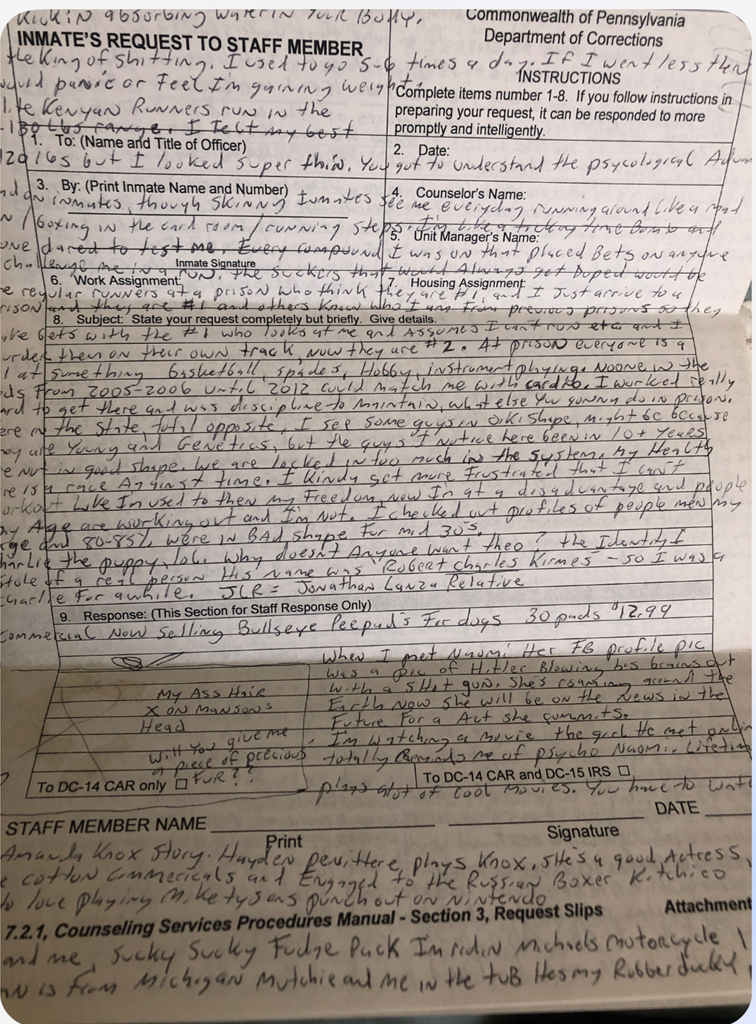 Kickin absorbing water in your Body.
Commonwealth of Pennsylvania
Department of Corrections
INMATE'S REQUEST TO STAFF MEMBER
the King of shitting. I used to go 5-6 times a day. If I went less then
INSTRUCTIONS
would panic or Feel I'm gaining weight.
Complete items number 1-8. If you follow instructions in
preparing your request, it can be responded to more
promptly and intelligently.
Kenyan Runners run in the
130 Lbs range. I felt my best
1. To: (Name and Title of Officer)
2. Date:
120 lbs but I looked super thin. You got to understand the psycological
3. By: (Print Inmate Name and Number)
4. Counselor's Name:
on inmates, though skinny Inmates see me everyday running around Like a mad
/ Boxing in the card room / running steps. I'm Like a ticking time Bomb and
5. Unit Manager's Name:
dared to test me. Every compound I was on that placed Bets on anyone
Inmate Signature
challenge me in a run. the suckers that would Always get Duped would be
6. Work Assignment:
7. Housing Assignment:
regular runners at a prison who think they are #1, and I Just arrive to a
and they are #1 and others Know who I am From previous prisons so they
8. Subject: State your request completely but briefly. Give details.
Bets with the #1 who looks at me and Assumes I can't run etc and I
them on their own track, now they are #2. At prison everyone is a
at something Basketball, spades, Hobby, instrument playing. Noone in the
From 2005-2006 until 2012 could match me with cardio. I worked really
to get there and was discipline to maintain, what else you gonna do in prison.
in the State, total opposite, I see some guys in Oiki Shape, might be because
are Young and Genetics, but the guys I notice here been in 10+ Years
Not in good shape. We are locked in too much in the system. My Health
is a race Against time. I kindy get more Frustrated that I can't
workout Like I'm used to then my Freedom, now I'm at a disadvantage and people
my Age are working out and I'm not. I checked out profiles of people men my
age and 80-85% were in BAd shape For mid 30's.
Charlie the puppy, lol. Why doesn't Anyone want theo? the Identity I
stole of a real person His name was Robert Charles Kirmes - so I was a
Charlie For awhile. JLR = Jonathan Lanza Relative
9. Response: (This Section for Staff Response Only)
Commercial Now selling Bullseye Peepad's For dogs 30 pads $12.99
When I met Naomi Her FB profile pic
was a pic of Hitler Blowing his brains out
with a shot gun. She's roaming around the
Earth Now she will be on the News in the
Future For a Act she commits.
My Ass Hair
X on Mansons
Head
Will You give me
a piece of precious
FUR??
I'm watching a movie the girl He met online
totally Reminds me of psycho Naomi. Lifetime
To DC-14 CAR only
To DC-14 CAR and DC-15 IRS
plays alot of cool Movies. You have to watch
STAFF MEMBER NAME
DATE
Print
Signature
Amanda Knox Story. Hayden Penittere plays Knox, she's a good Actress,
cotton commericals and Engaged to the Russian Boxer Kitchico
to love playing Mike tysons punch out on Nintendo
7.2.1, Counseling Services Procedures Manual - Section 3, Request Slips
Attachment
and me, Sucky Sucky Fudge Pack Im ridin Michaels motorcycle
is From Michigan Mutchie and me in the tuB Hes my Rubber ducky